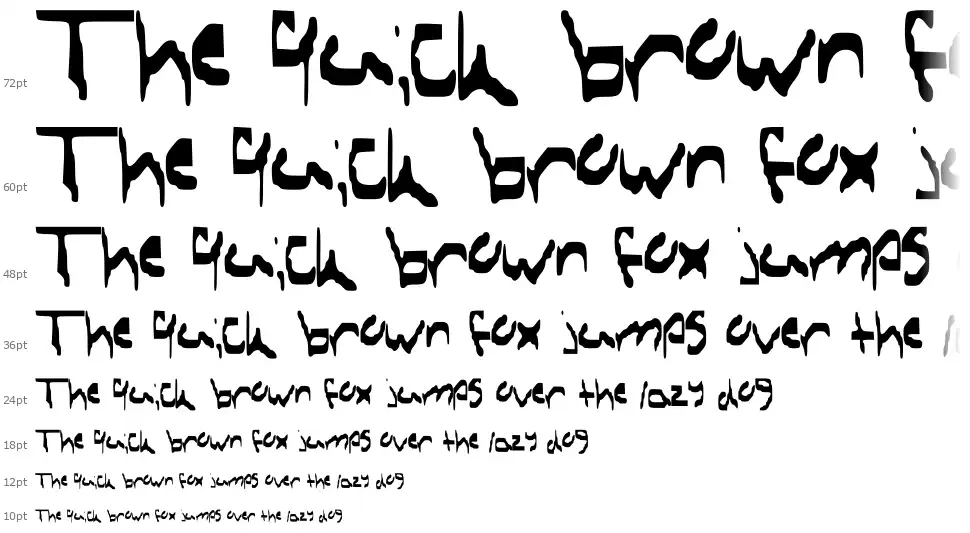 72pt The quick brown f
60pt The quick brown fox j
48pt The quick brown fox jumps
36pt The quick brown fox jumps over the l
24pt The quick brown fox jumps over the lazy dog
18pt The quick brown fox jumps over the lazy dog
12pt The quick brown fox jumps over the lazy dog
10pt The quick brown fox jumps over the lazy dog